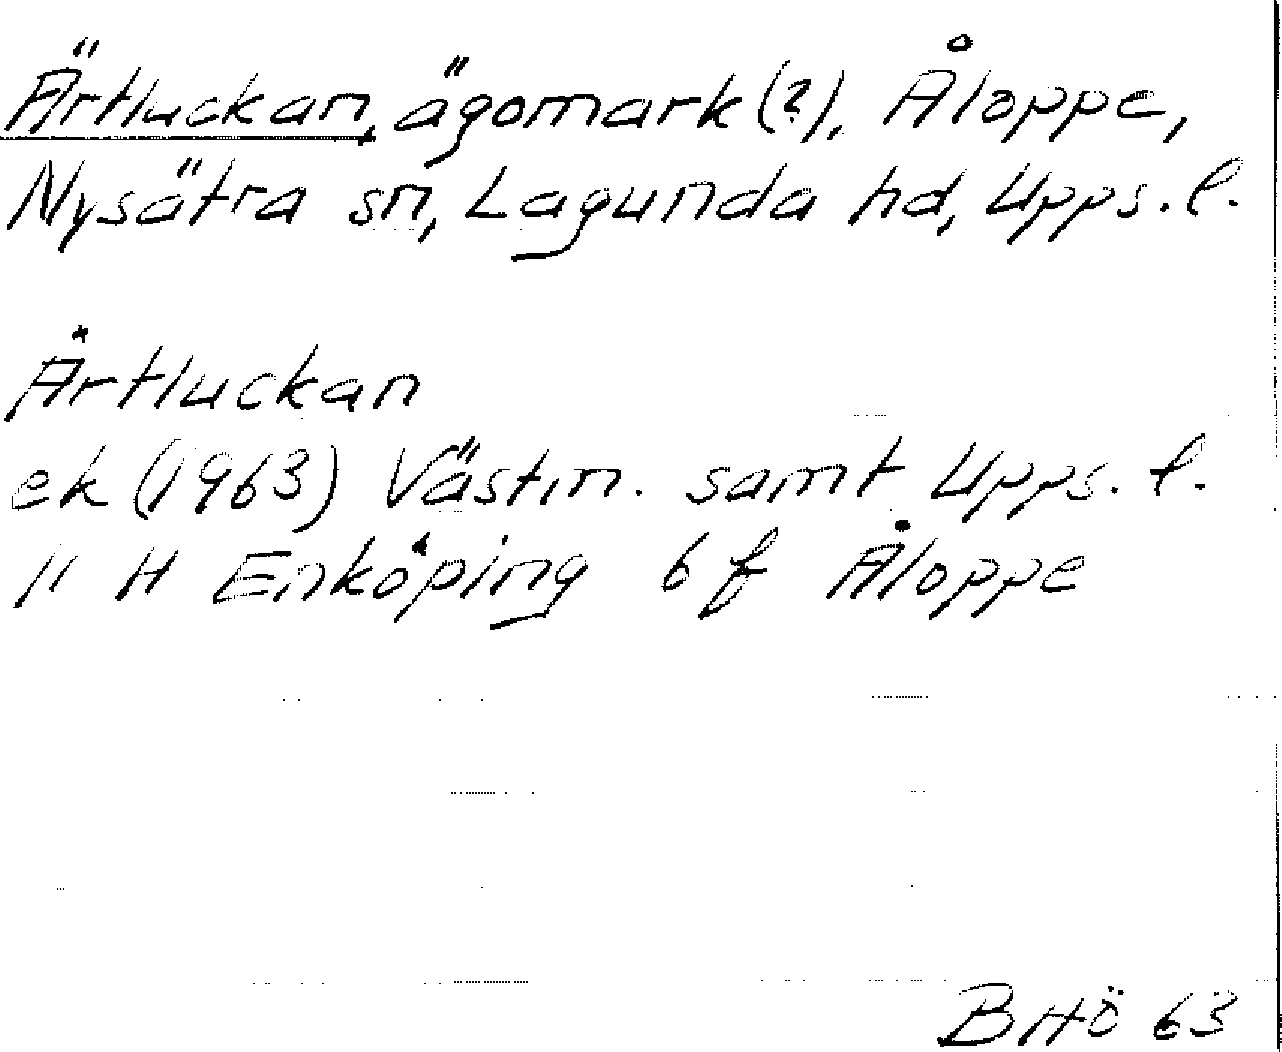 Ärtluckan, ägomark (?), Åloppe,
Nysätra sn, Lagunda hd, Upps. l.
Ärtluckan
ek (1963) Västm. samt Upps. l.
11 H Enköping 6 f Åloppe
BHÖ 63